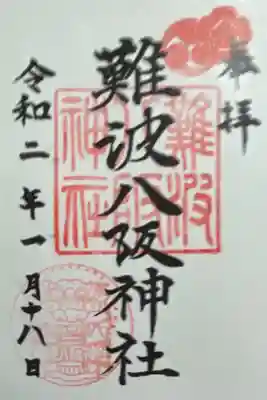 奉拝
難波八阪神社
令和二年一月十八日
難波
八阪
神社